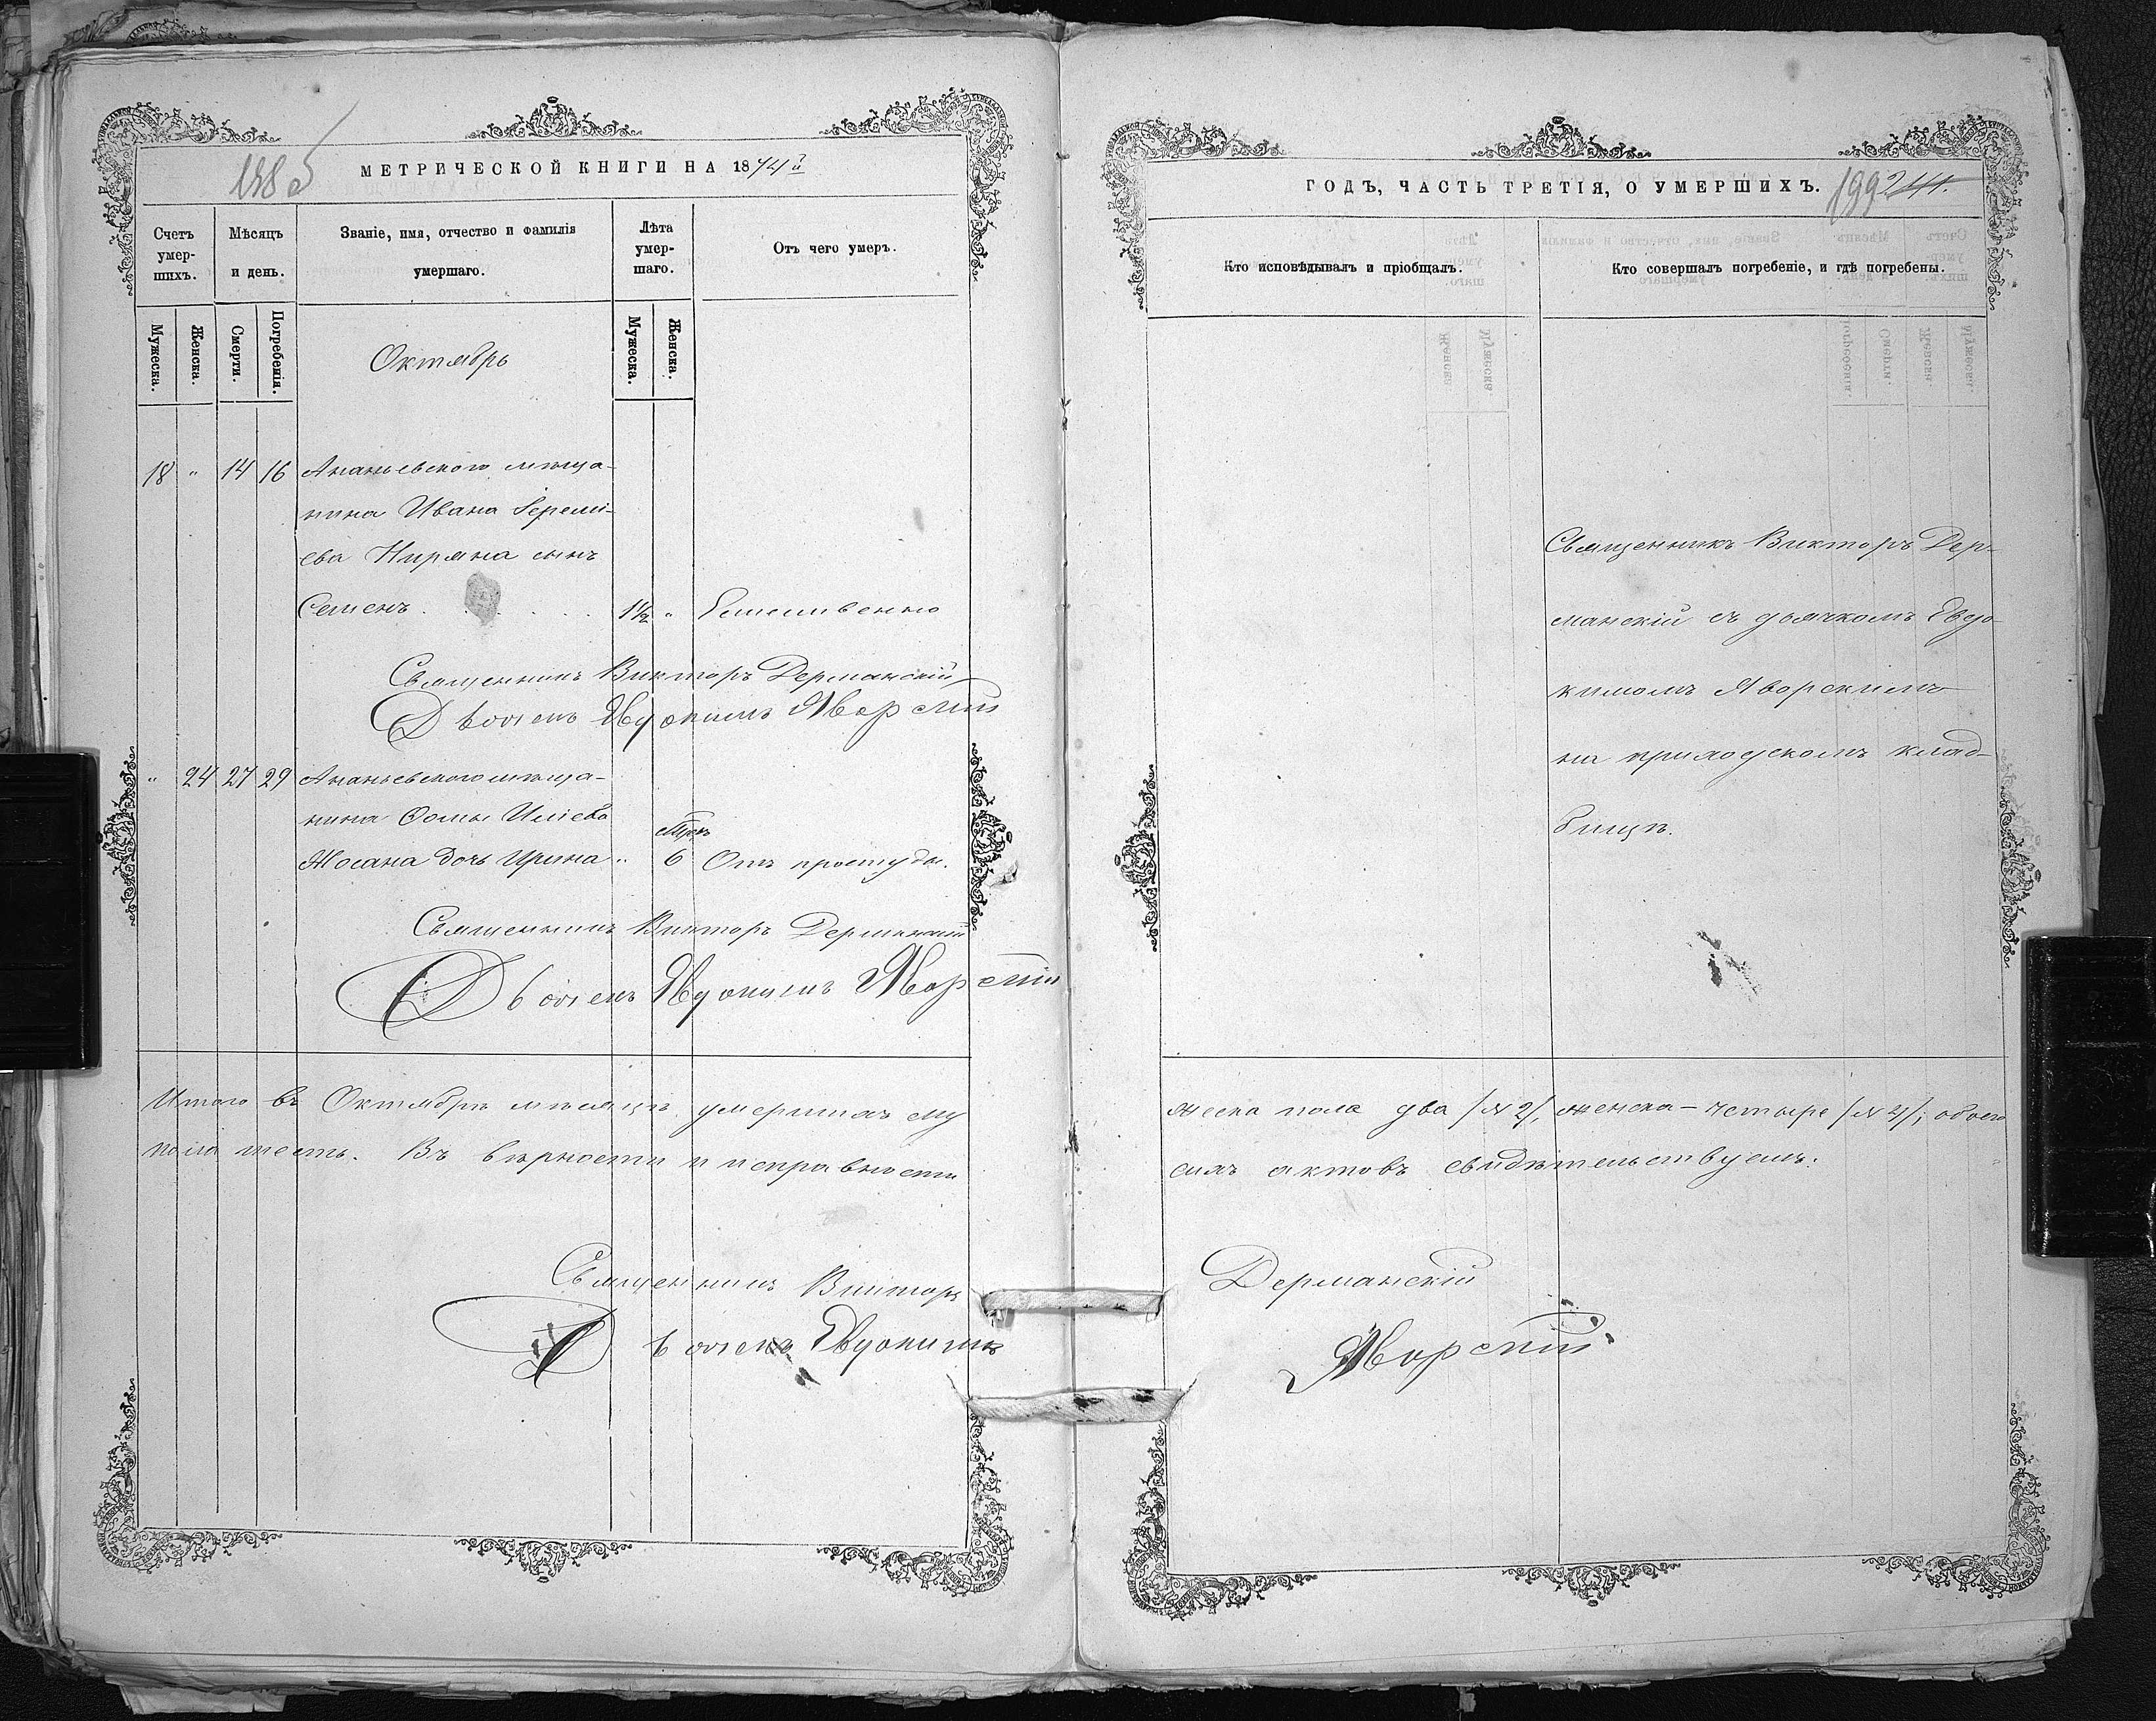 МЕТРИЧЕСКОЙ КНИГИ НА 1874й
Счетъ умер-шихъ.
Мѣсяцъ и день.
Званіе, имя, отчество и фамилія умершаго.
Лѣта умер-шаго.
Отъ чего умеръ.
Мужеска.
Женска.
Смерти.
Погребенія.
Мужеска.
Женска.
Октябрь
18 " 14 16 Ананьевского мѣща-
нина Ивана Іереми-
ева Киряна сынъ
Семенъ. 1½ " Естественно
Священникъ Викторъ Дерманскій
Дьячекъ Евдокимъ Яворскій
" 24 27 29 Ананьевского мѣща-
нина Ѳомы Иліева
Жосана дочь Ирина " 6 Отъ простуды.
Священникъ Викторъ Дерманскій
Дьячекъ Евдокимъ Яворскій
Итого въ Октябрѣ мѣсяцѣ умершихъ му
пола шесть. Въ вѣрности и исправности
Священникъ Викторъ
Дьячекъ Евдокимъ
ГОДЪ, ЧАСТЬ ТРЕТІЯ, О УМЕРШИХЪ. 199 241.
Кто исповѣдывалъ и пріобщалъ.
Кто совершалъ погребеніе, и гдѣ погребены.
Священникъ Викторъ Дер-
манскій съ дьячкомъ Евдо-
кимомъ Яворскимъ
на приходскомъ клад-
бищѣ.
жеска пола два /№ 2/, женска – четыре /№ 4/; обоего
сихъ актовъ свидѣтельствуемъ:
Дерманскій
Яворскій